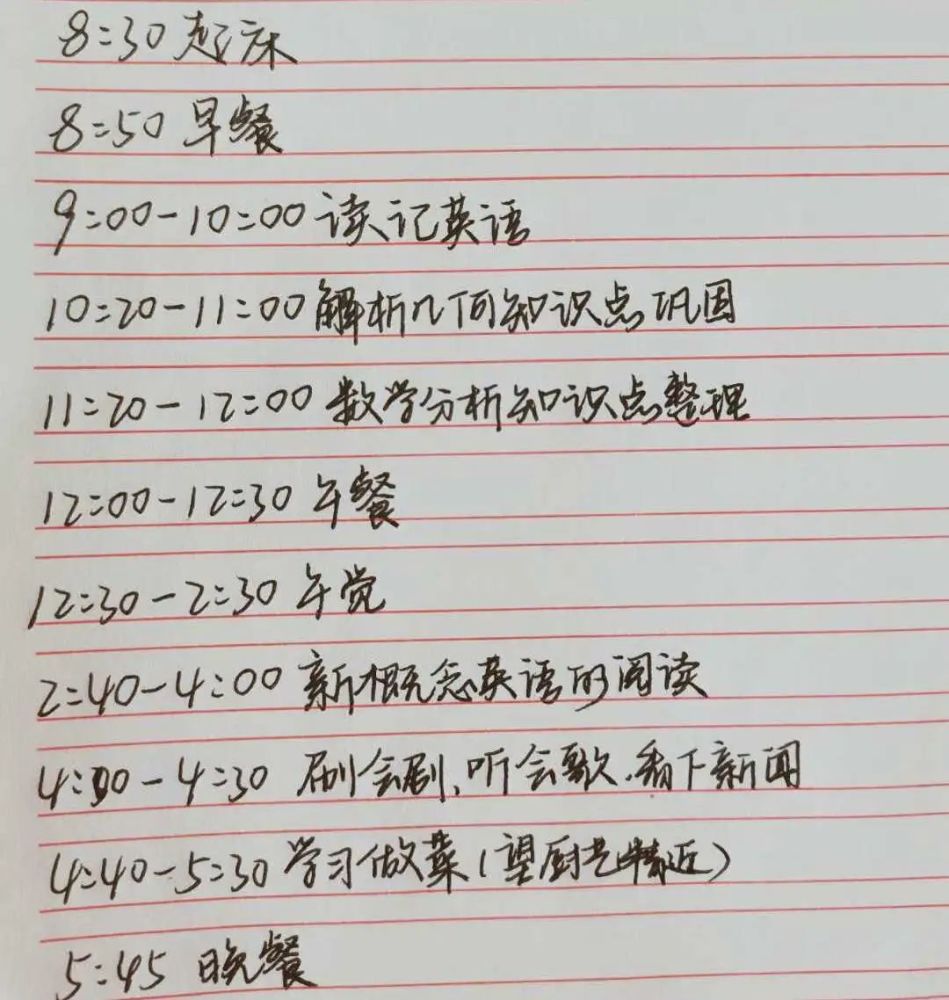 8:30 起床
8:50 早餐
9:00-10:00 读记英语
10:20-11:00 解析几何知识点巩固
11:20-12:00 数学分析知识点整理
12:00-12:30 午餐
12:30-2:30 午觉
2:40-4:00 新概念英语的阅读
4:00-4:30 刷会剧、听会歌、看下新闻
4:40-5:30 学习做菜(望厨艺精近)
5:45 晚餐